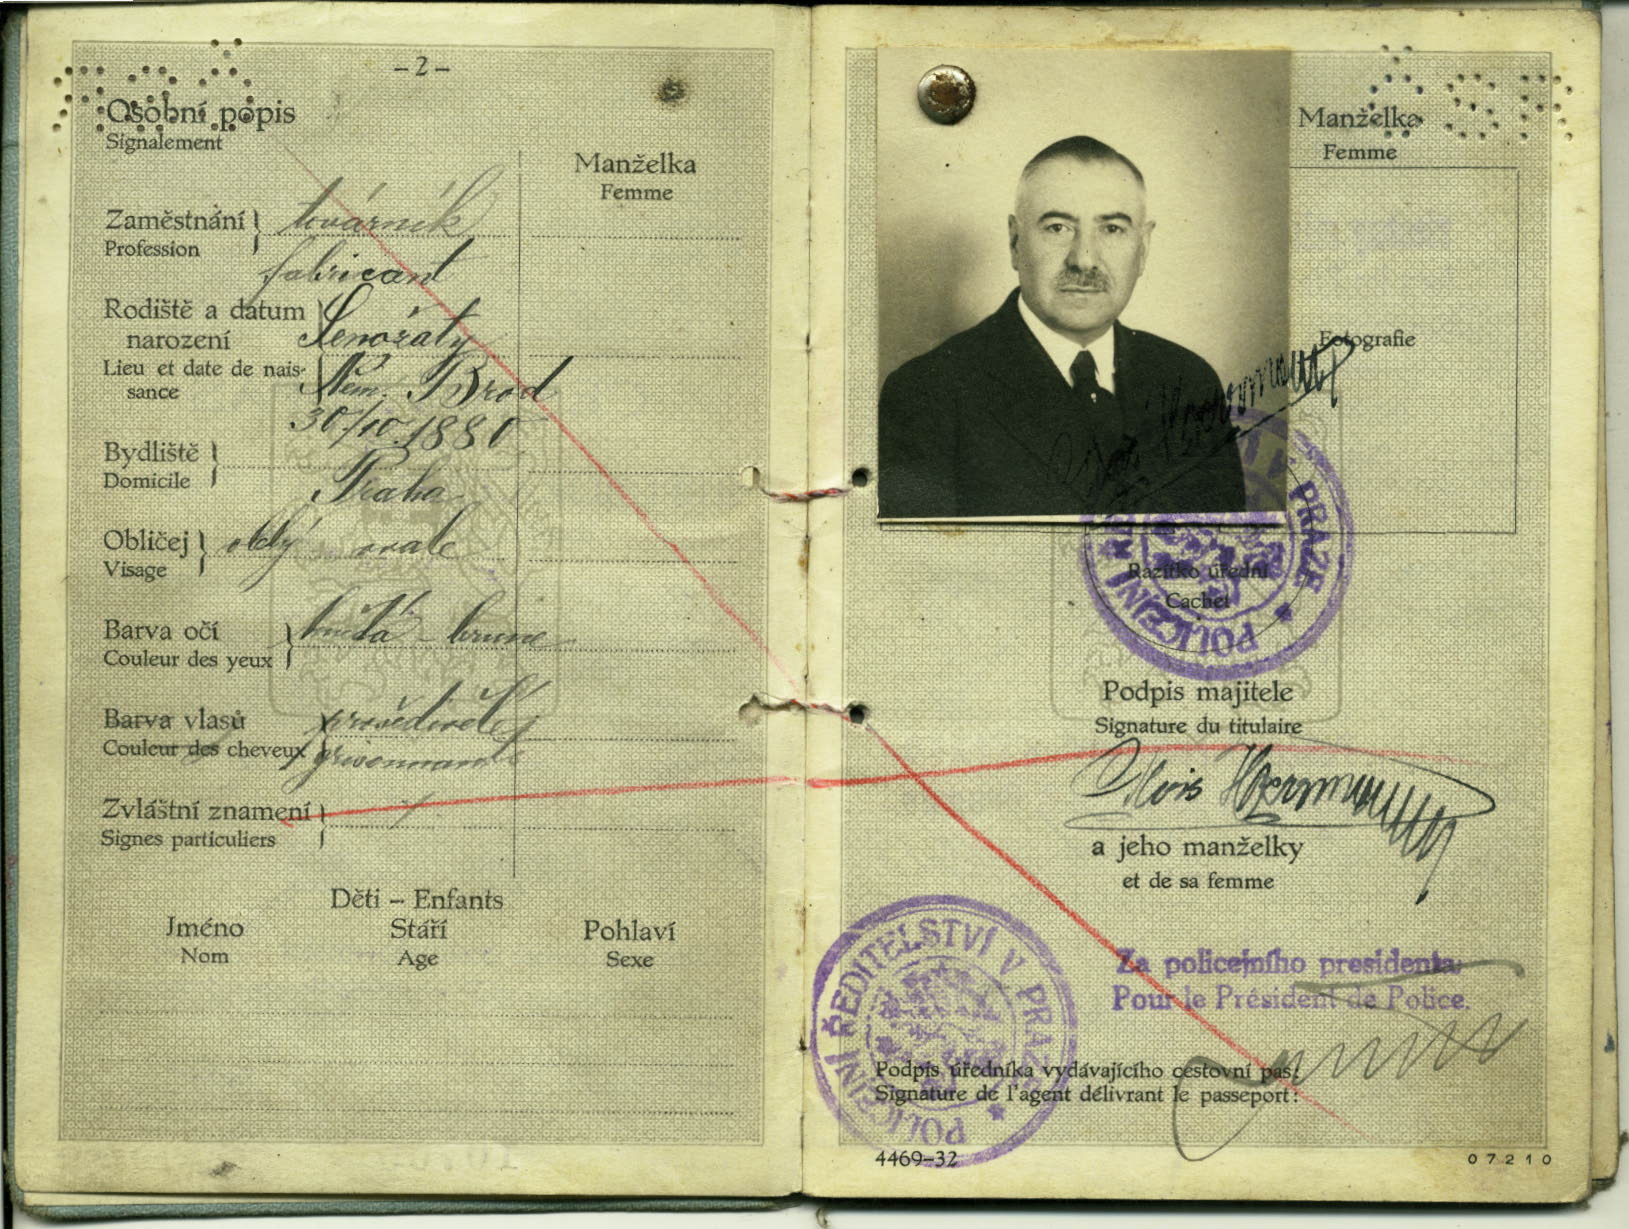 -2-
Osobní popis
Signalement
Manželka
Femme
Zaměstnání
Profession
továrník
fabricant
Rodiště a datum
narození
Lieu et date de nais-
sance
Senožaty
Něm. Brod
30/10. 1880
Bydliště
Domicile
Praha
Obličej
Visage
oblý ovale
Barva očí
Couleur des yeux
hnědá - brune
Barva vlasů
Couleur des cheveux
prošedivělé
grisonnants
Zvláštní znamení
Signes particuliers
Děti – Enfants
Jméno
Nom
Stáří
Age
Pohlaví
Sexe
Manželka
Femme
Fotografie
POLICEJNÍ V PRAZE
Razítko úřední
Cachet
Podpis majitele
Signature du titulaire
Alois
a jeho manželky
et de sa femme
POLICEJNÍ ŘEDITELSTVÍ V PRAZE
Za policejního presidenta:
Pour le Président de Police.
Podpis úředníka vydávajícího cestovní pas:
Signature de l'agent délivrant le passeport:
4469-32
07210